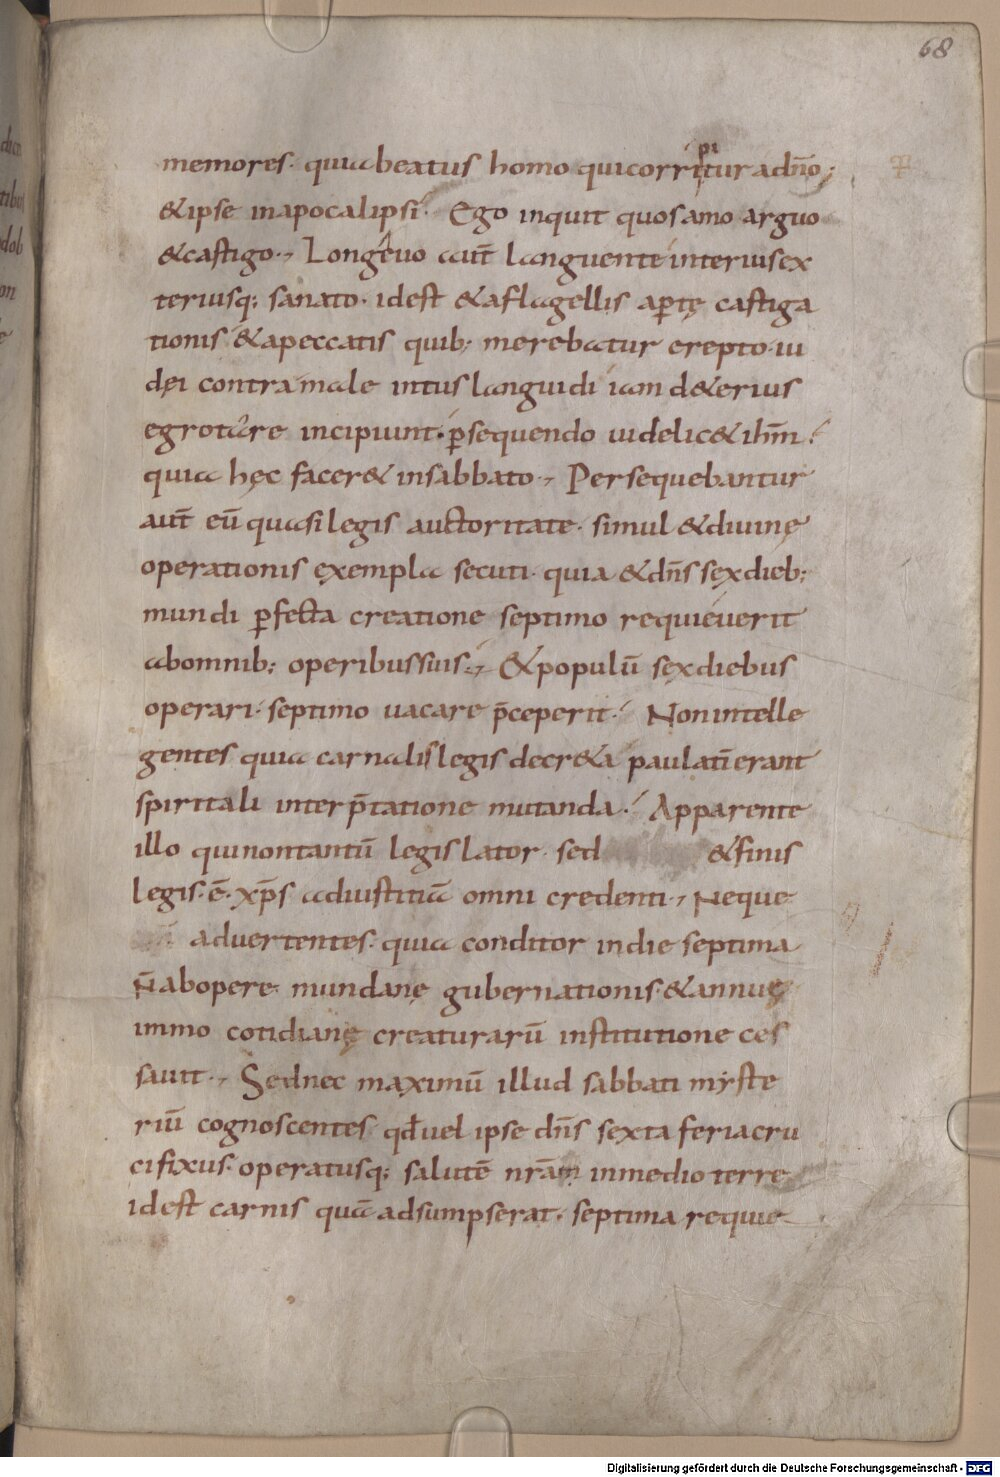 68
memores· quia beatus homo qui corripitur a dn̄o;
& ipse in apocalipsi· Ego inquit quos amo arguo
& castigo·, Longeuo aut̄ languente interius ex
teriusq; sanato· id est & a flagellis aꝑtę castiga
tionis & a peccatis quib; merebatur erepto· iu
dęi contra male intus languidi iam d&erius
egrotare incipiunt· ꝑsequendo uidelic& ih̄m·
quia hęc facer& in sabbato·, Persequebantur
aut̄ eū quasi legis auctoritate· simul & diuinę
operationis exempla secuti· quia & dn̄s sex dieb;
mundi ꝑfecta creatione septimo requieuerit
ab omnib; operibus suis·, & populū sex diebus
operari· septimo uacare p̄ceperit· Non intelle
gentes quia carnalis legis decr&a paulatī erant
spiritali interp̄tatione mutanda· Apparente
illo qui non tantū legis lator· sed & finis
legis· ē· xp̄s ad iustitiā omni credenti·, Neque
aduertentes· quia conditor in die septima
n̄ ab opere· mundanę gubernationis· & annuę
immo cotidianę creaturarū institutione ces
sauit·, Sed nec maximū illud sabbati myste
riū cognoscentes· qd̄ uel ipse dn̄s sexta feria cru
cifixus· operatusq; salutē nrām in medio terre
id est carnis quā adsumpserat· septima requie
Digitalisierung gefördert durch die Deutsche Forschungsgemeinschaft - DFG